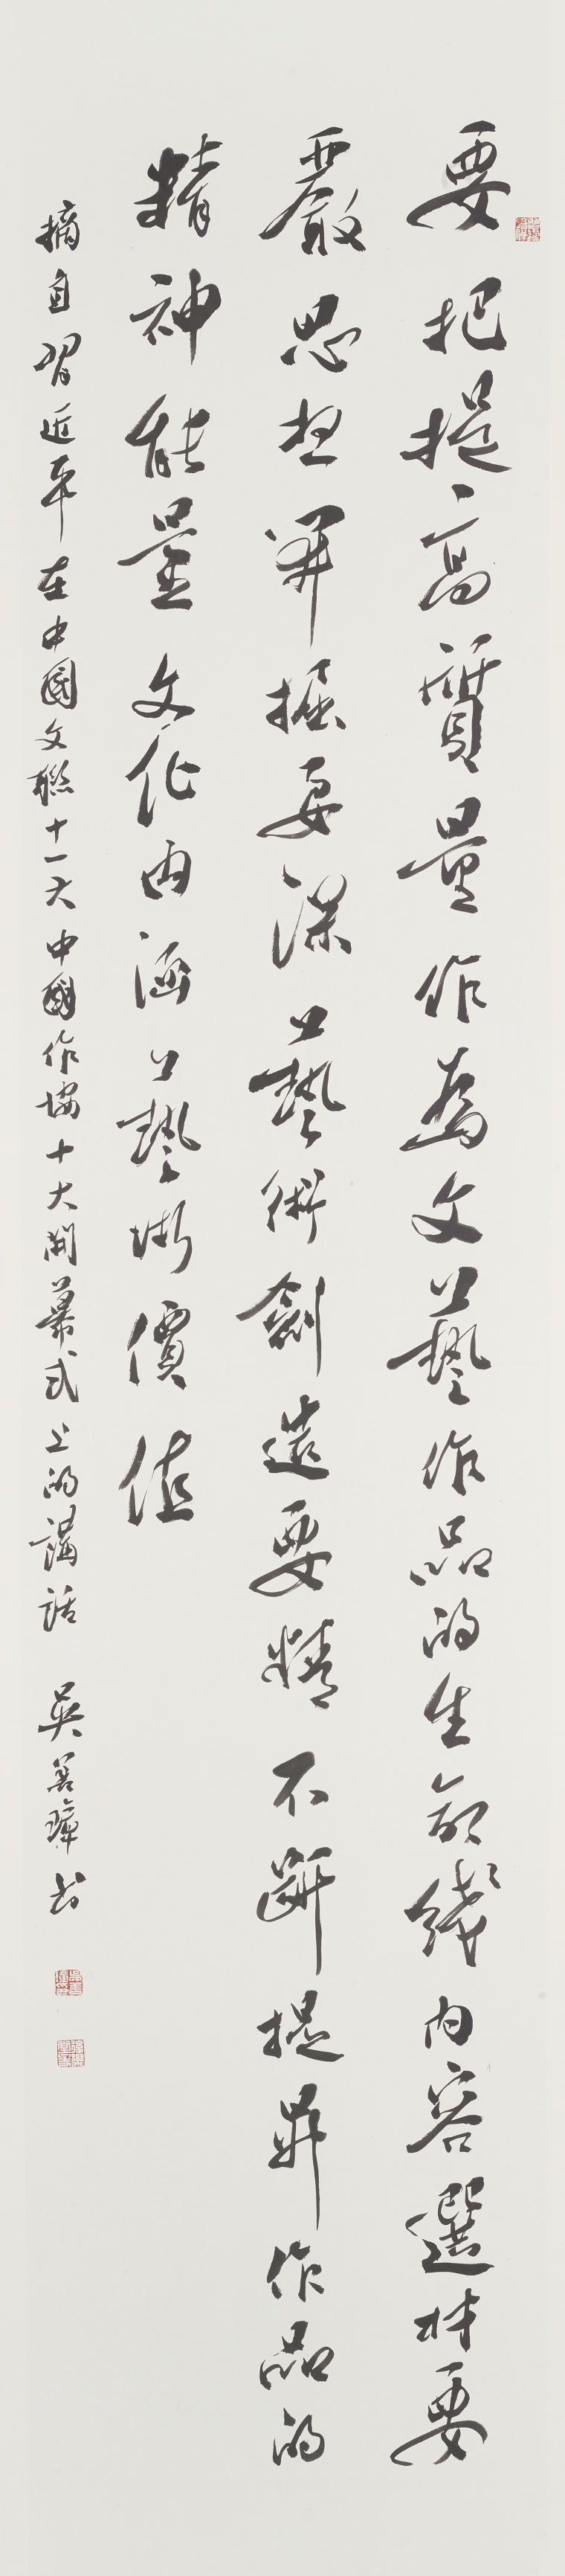 要把提高質量作為文藝作品的生命綫内容選材要
嚴思想開掘要深藝術創造要精不斷提昇作品的
精神能量文化内涵藝術價值
摘自習近平在中國文聯十一大中國作協十大開幕式上的講話 吳善璋書